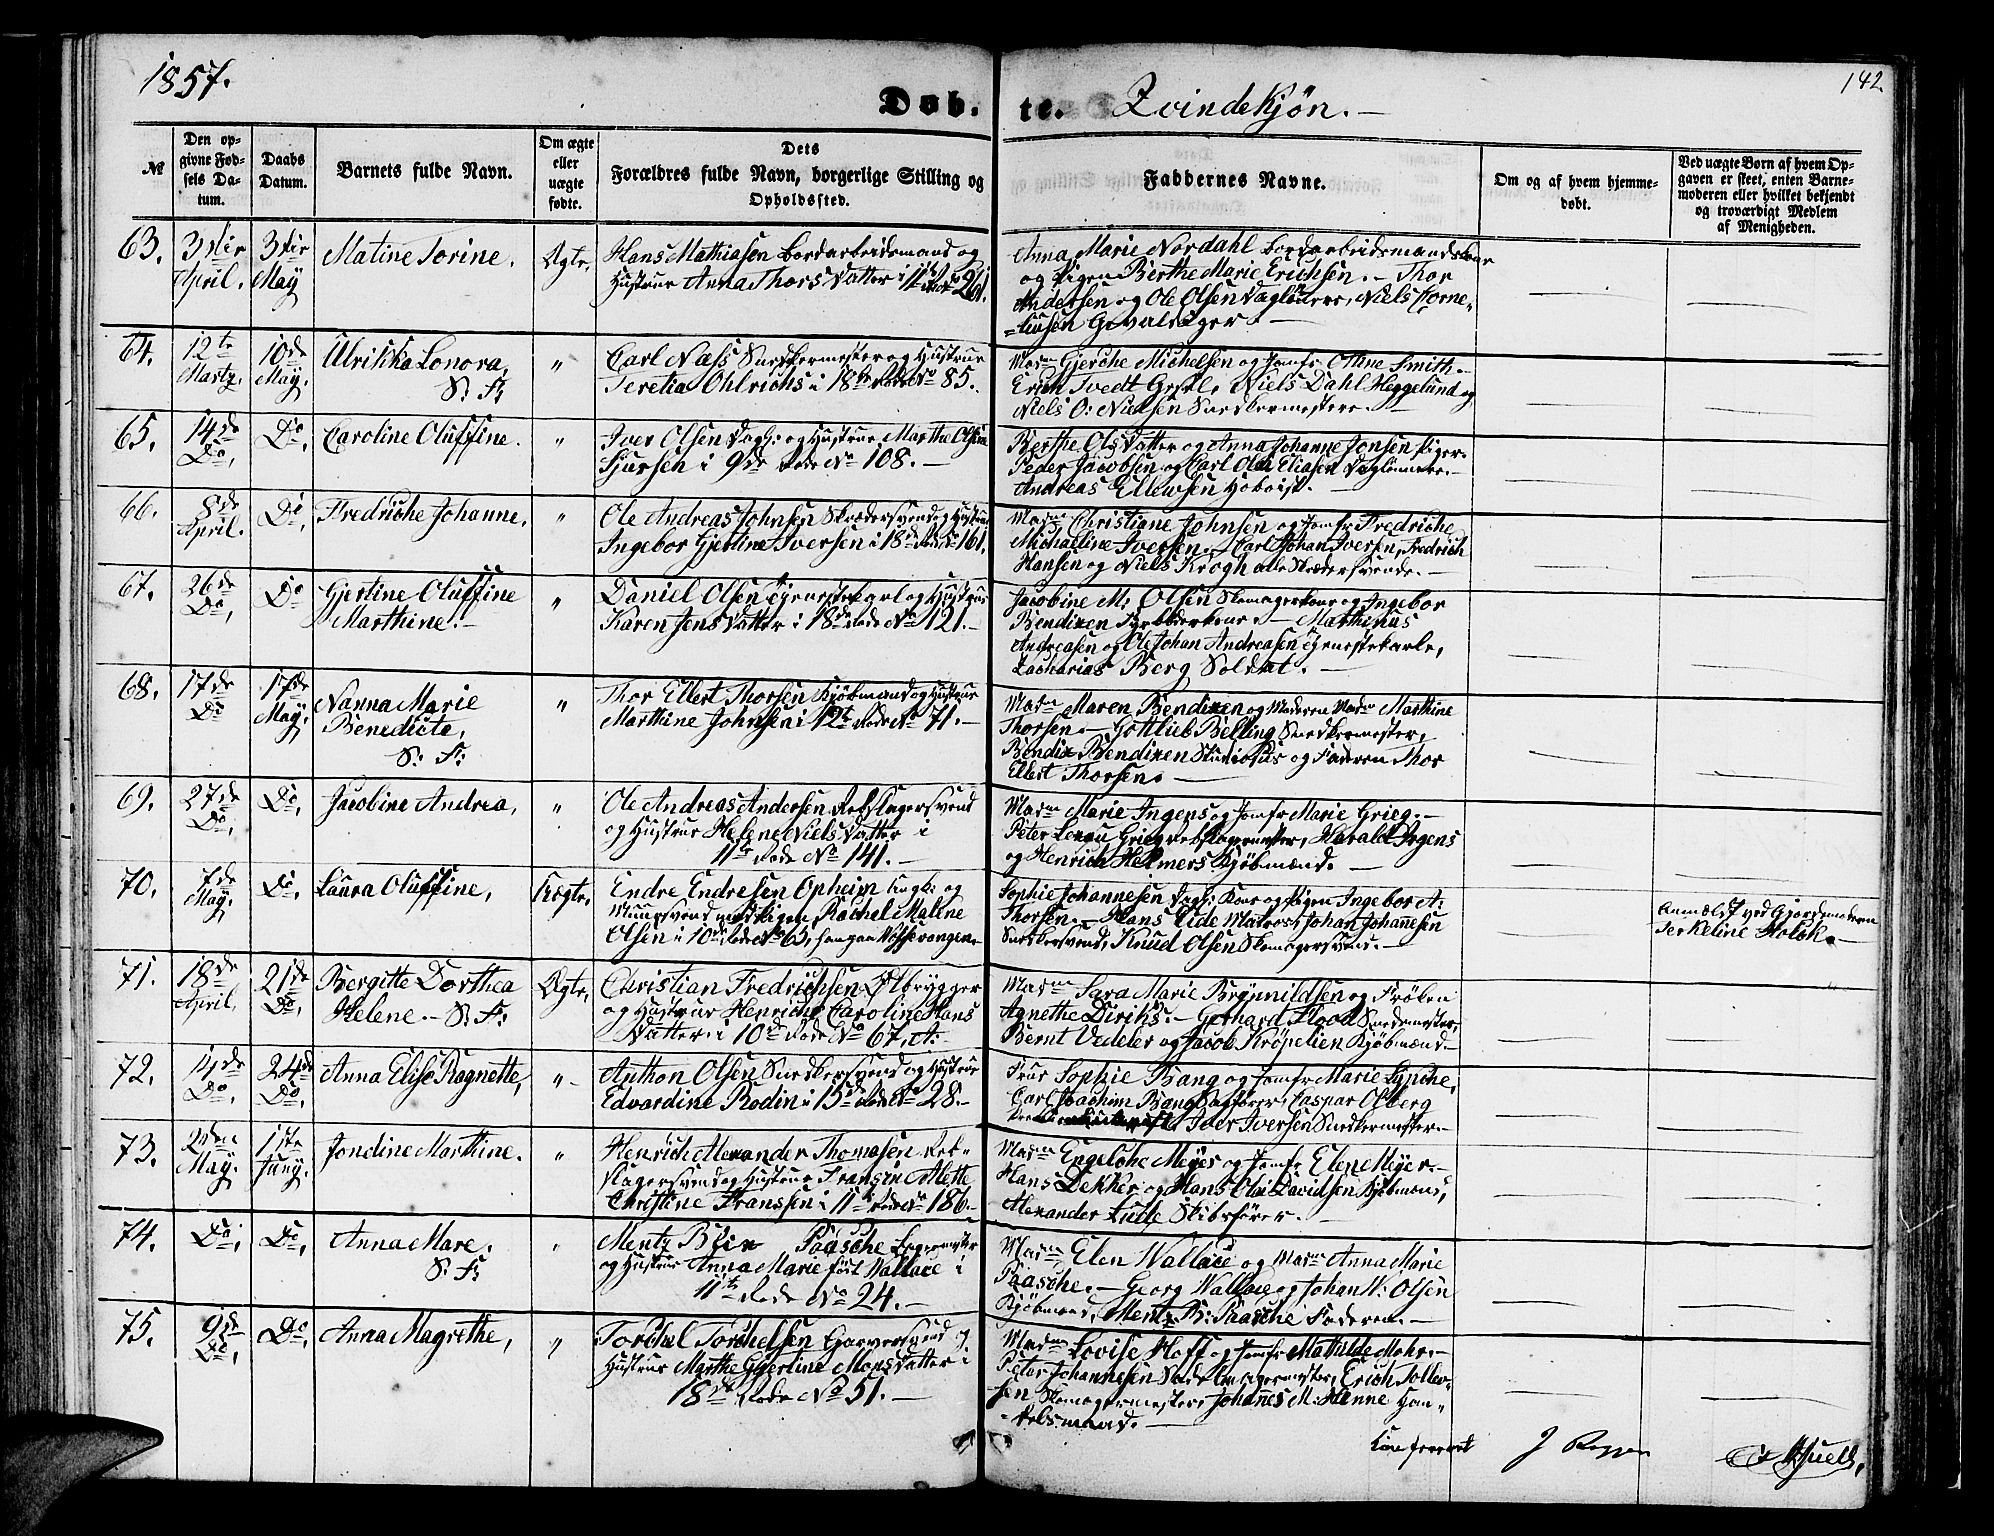 1857.
142.
Døb. te. Qvindekjøn. —
№
Den op-
givne Fød-
sels Da-
tum.
Daabs
Datum.
Barnets fulde Navn.
Om ægte
eller
uægte
fødte.
Dets
Forældres fulde Navn, borgerlige Stilling og
Opholdssted.
Faddernes Navne.
Om og af hvem hjemme-
døbt.
Ved uægte Børn af hvem Op-
gaven er skeet, enten Barne-
moderen eller hvilket bekjendt
og troværdigt Medlem
af Menigheden.
63. 3die April. 3die May Matine Torine. Ægte,
Hans Mathiasen Bordarbeidsmand og
Hustrue Anna Thorsdatter i 11te Rode No 261.
Anna Marie Nordahl Bordarbeidsmandskone
og Pigen Berthe Marie Erichsen. — Thor
Andersen og Ole Olsen Daglønere, Niels Corne-
-liusen
64. 12te Martz. 10de May. Ulrikka Lonora, S. F. "
Carl Næss Snedkermester og Hustrue
Teretia Ohlrichs i 18de Rode No 85.
Madm Gjerche Michelsen og Jomfr Othine Smith. —
Tvedt Niels Dahl Heggelund og
Niels O: Nielsen Snedkermestere. —
65. 14de Do, Do, Caroline Oluffine. "
Iver Olsen Dagl: og Hustrue Marthe Olsine
Sjursen i 9de Rode No 108. —
Berthe Olsdatter og Anna Johanne Jonsen Piger.
Peder Jacobsen og Carl Olai Eliasen Daglønnere. —
Andreas Ellewsen Hoboist. —
66. 8de April. Do, Fredriche Johanne, "
Ole Andreas Johnsen Skrædersvend og Hustrue
Ingebor Gjertine Iversen i 18de Rode No 161.
Madm Christiane Johnsen og Jomfr Fredriche
Michaeline Iversen. Carl Johan Iversen, Fredrich
Hansen og Niels Krogh alle Skrædersvende. —
67. 26de Do, Do Gjertine Oluffine Marthine. — "
Daniel Olsen Tjenestekarl og Hustrue
Karen Jensdatter i 18de Rode No 121. —
Jacobine M: Olsen Skomagerkone og Ingebor
Bendixen — Mathinus
Andreasen og Ole Johan Andreasen Tjenestekarle,
Zacharias Berg Soldat. —
68. 17de Do 17de May, Nanna Marie Benedicte, S: F: "
Thor Ellert Thorsen Kjøbmand og Hustrue
Marthine Johnsen i 12te Rode No 71. —
Madm Maren Bendixen og Moderen Madm Marthine
Thorsen — Gottlieb Belling Snedkermester,
Bendix Bendixen Studiosus og Faderen Thor
Ellert Thorsen. —
69. 27de Do, Do, Jacobine Andrea, "
Ole Andreas Andersen Rebslagersvend
og Hustrue Helene Nielsdatter i
11te Rode No 141. —
Madm Marie Ingens og Jomfr Marie Grieg. —
Peter Lexau Grieg Rebslagermester, Harald Irgens
og Henrich Helmers Kjøbmænd. —
70. 7de May, Do, Laura Oluffine, Uægte,
Endre Endresen Opheim Ungk: og
Muursvend med Pigen Rachel Malene
Olsen i 10de Rode No 63,
Sophie Johannesen Dagl: Kone og Pigen Ingebor A:
Thorsen. — Hans Eide Matros, Johan Johanesen
Snedkersvend, Knud Olsen Skomagersvend. —
Anmeldt ved Gjordemoderen
Terkeline Holck. —
71. 18de April, 21de Do, Bergitte Dorthea Helene. — S: F: Ægte,
Christian Fredrichsen Ølbrygger
og Hustrue Henriche Caroline Hans
datter i 10de Rode No 67, A:
Madm Sara Marie Brynnildsen og Frøken
Agnethe Diriks. — Gerhard Flood Smedemester,
Bernt Vedeler og Jacob Krøpelien Kjøbmænd. —
72. 14de Do, 24de Do, Anna Elise Ragnette, "
Anthon Olsen Snedkersvend og Hustrue
Edvardine Rodin i 15de Rode No 28. —
Frue Sophie Bang og Jomfr Marie Lynche,
Carl Joachim Bang Caspar Olberg
Iver Iversen Snedkermester. —
73. 2den May, 1ste Juny, Jondine Marthine. "
Henrich Alexander Thomasen Reb-
slagersvend og Hustrue Fransine Alette
Christine Franssen i 11te Rode No 186. —
Madm Engelche Meyer og Jomfr Elene Meyer. —
Hans Dekker og Hans Olai Davidsen Kjøbmænd,
Alexander Lude Skibsfører. —
74. Do, Do, Anna Mare. S: F: "
Mentz Paasche
og Hustrue Anna Marie født Wallace i
11te Rode No 24. —
Madm Elen Wallace og Madm Anna Marie
Paasche. — Georg Wallace og Johan W: Olsen
Kjøbmænd, Mentz B: Paasche Faderen. —
75. 9de Do, Do, Anna Magrethe, "
Torchel Torchelsen Garversvend og
Hustrue Marthe Gjertine Monsdatter i
18de Rode No 51. —
Madm Lovise Hoff og Jomfr Mathilde Mohr. —
Peter Johannesen Sadelmagermester, Erich Tollev-
sen Skomagermester, Johannes M: Henne Han-
-delsmand. —
Conferered